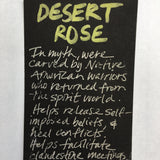 DESERT
ROSE
In myth, were
carved by Native
American warriors
who returned from
the spirit world.
Helps release self-
imposed beliefs &
heal conflicts.
Helps facilitate
clandestine meetings